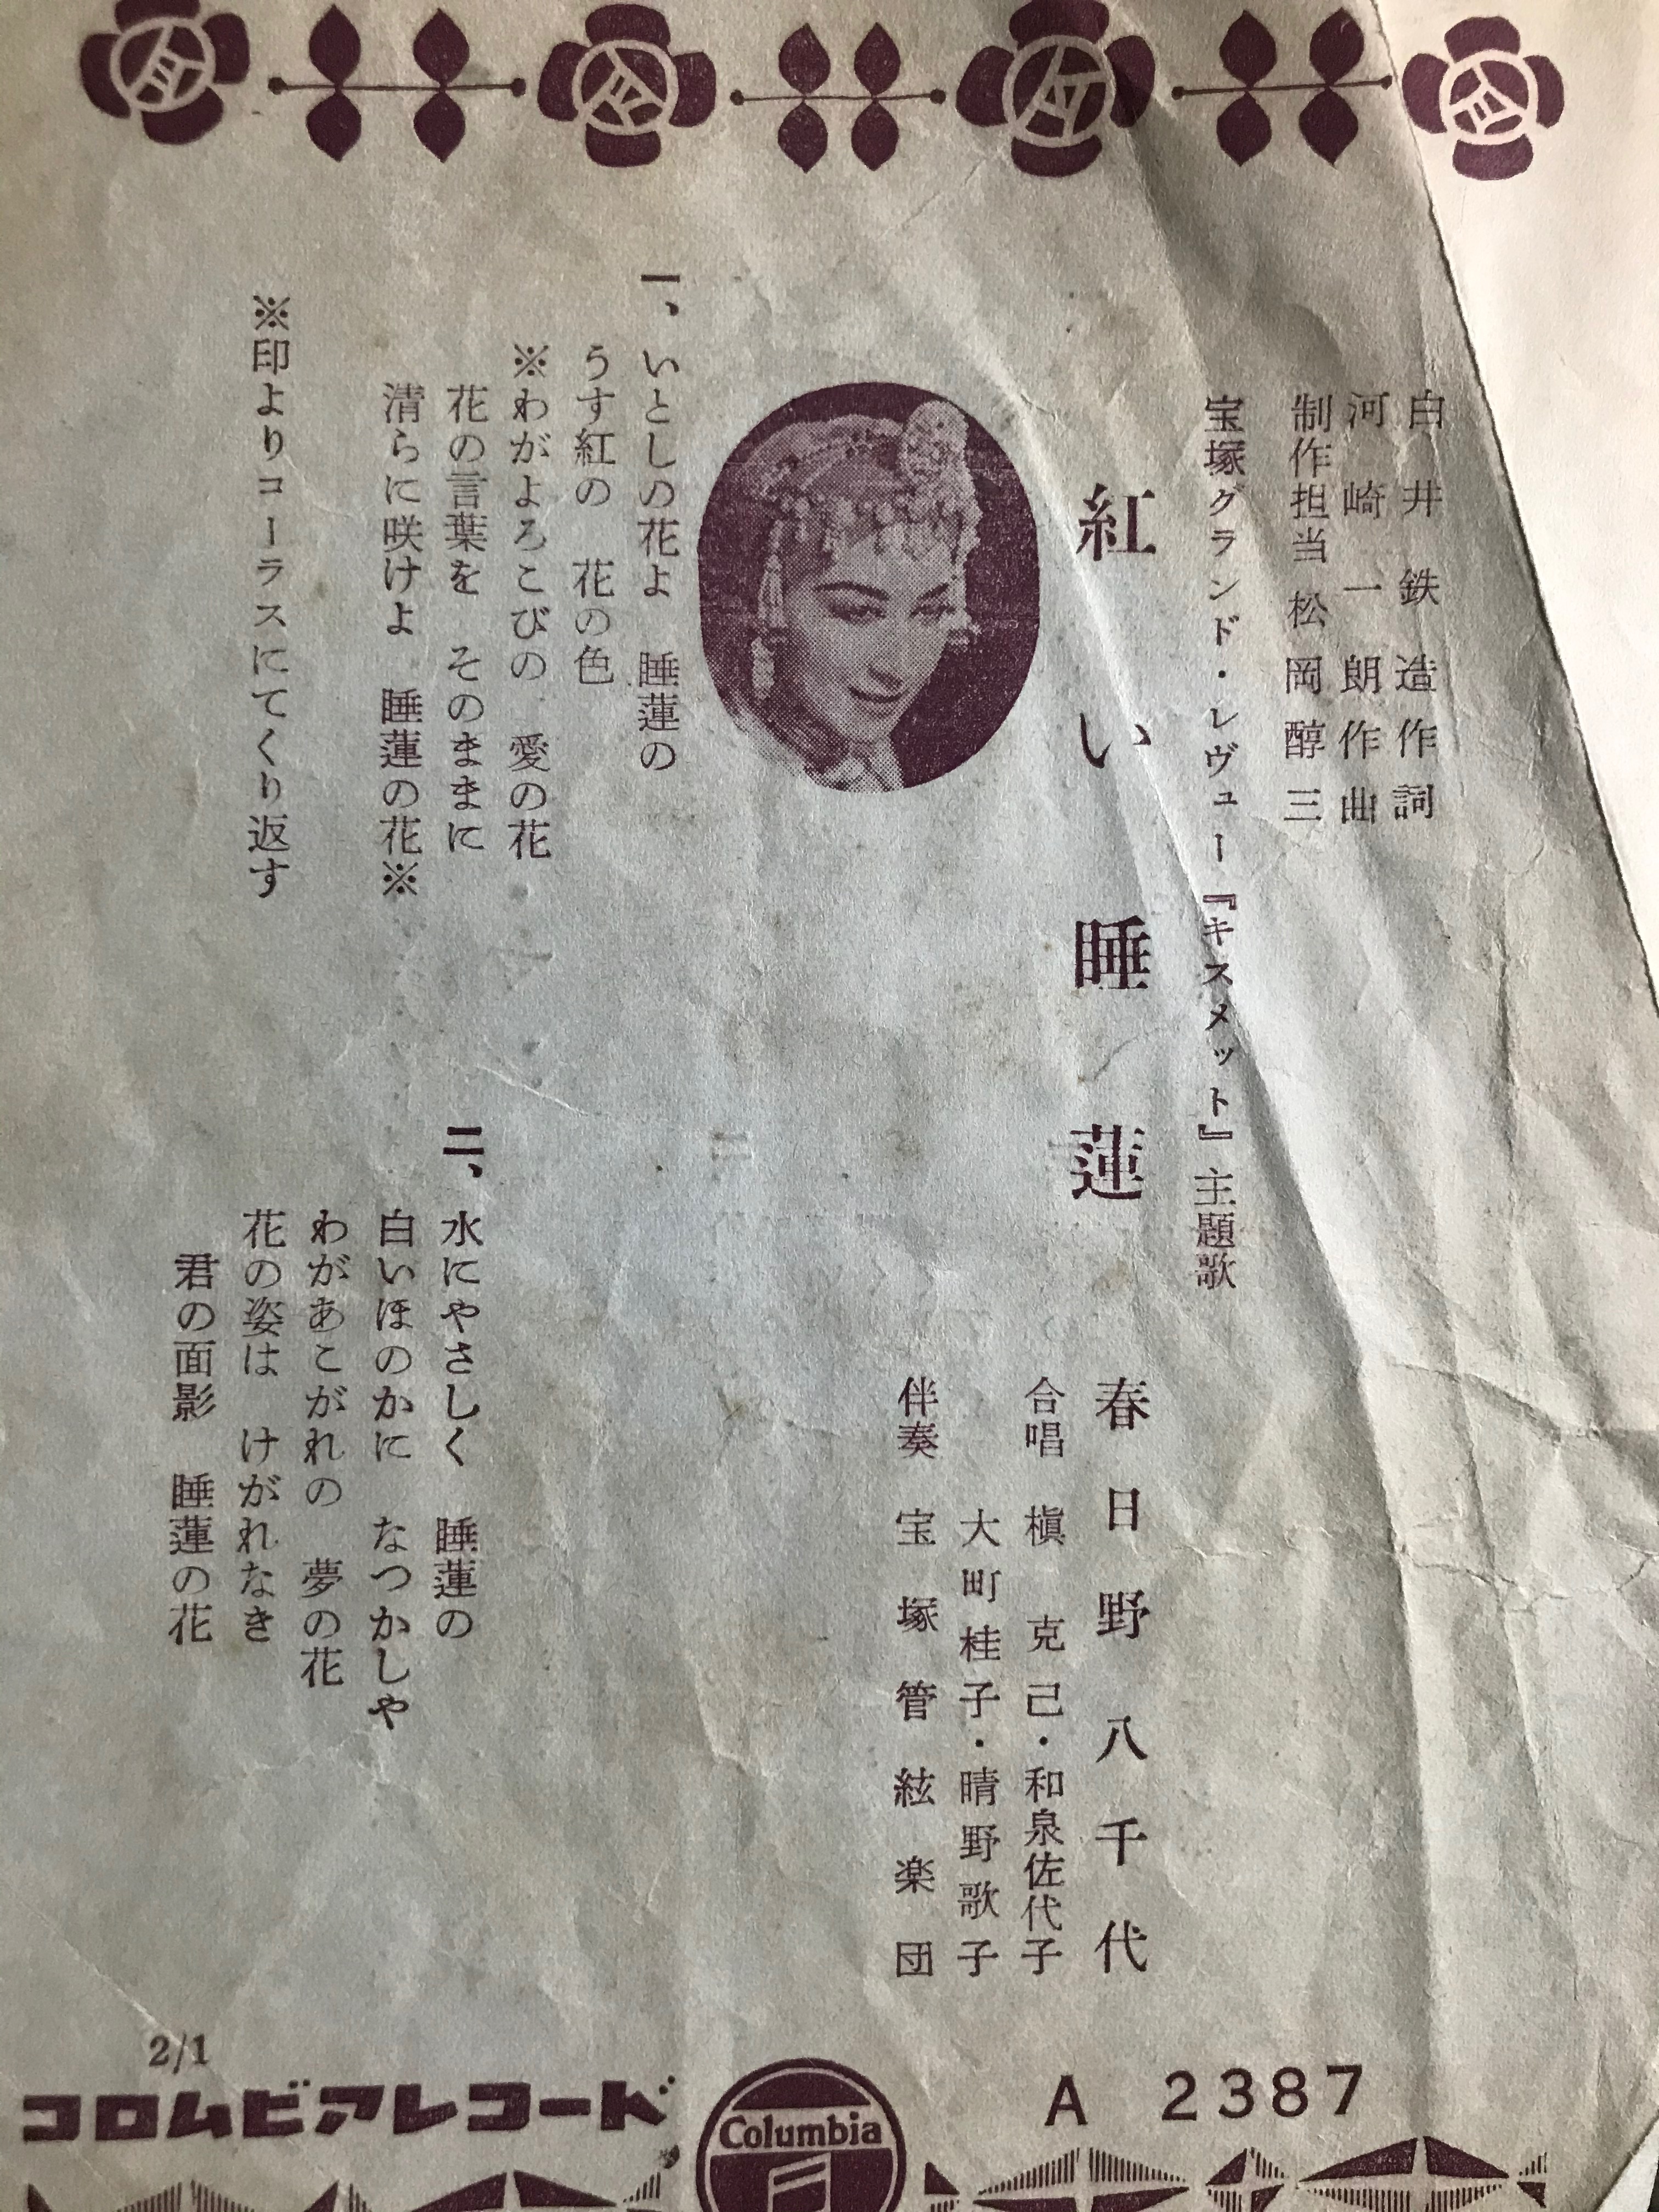 白井鉄造作詞
河崎一朗作曲
制作担当 松岡醇三
宝塚グランド・レヴュー『キスメット』主題歌
紅い睡蓮
春日野八千代
合唱 槇克己・和泉佐代子
大町桂子・晴野歌子
伴奏 宝塚管絃楽団
一、いとしの花よ 睡蓮の
うす紅の 花の色
※わがよろこびの 愛の花
花の言葉を そのままに
清らに咲けよ 睡蓮の花※
※印よりコーラスにてくり返す
二、水にやさしく 睡蓮の
白いほのかに なつかしや
わがあこがれの 夢の花
花の姿は けがれなき
君の面影 睡蓮の花
2/1
コロムビアレコード
Columbia
A 2387